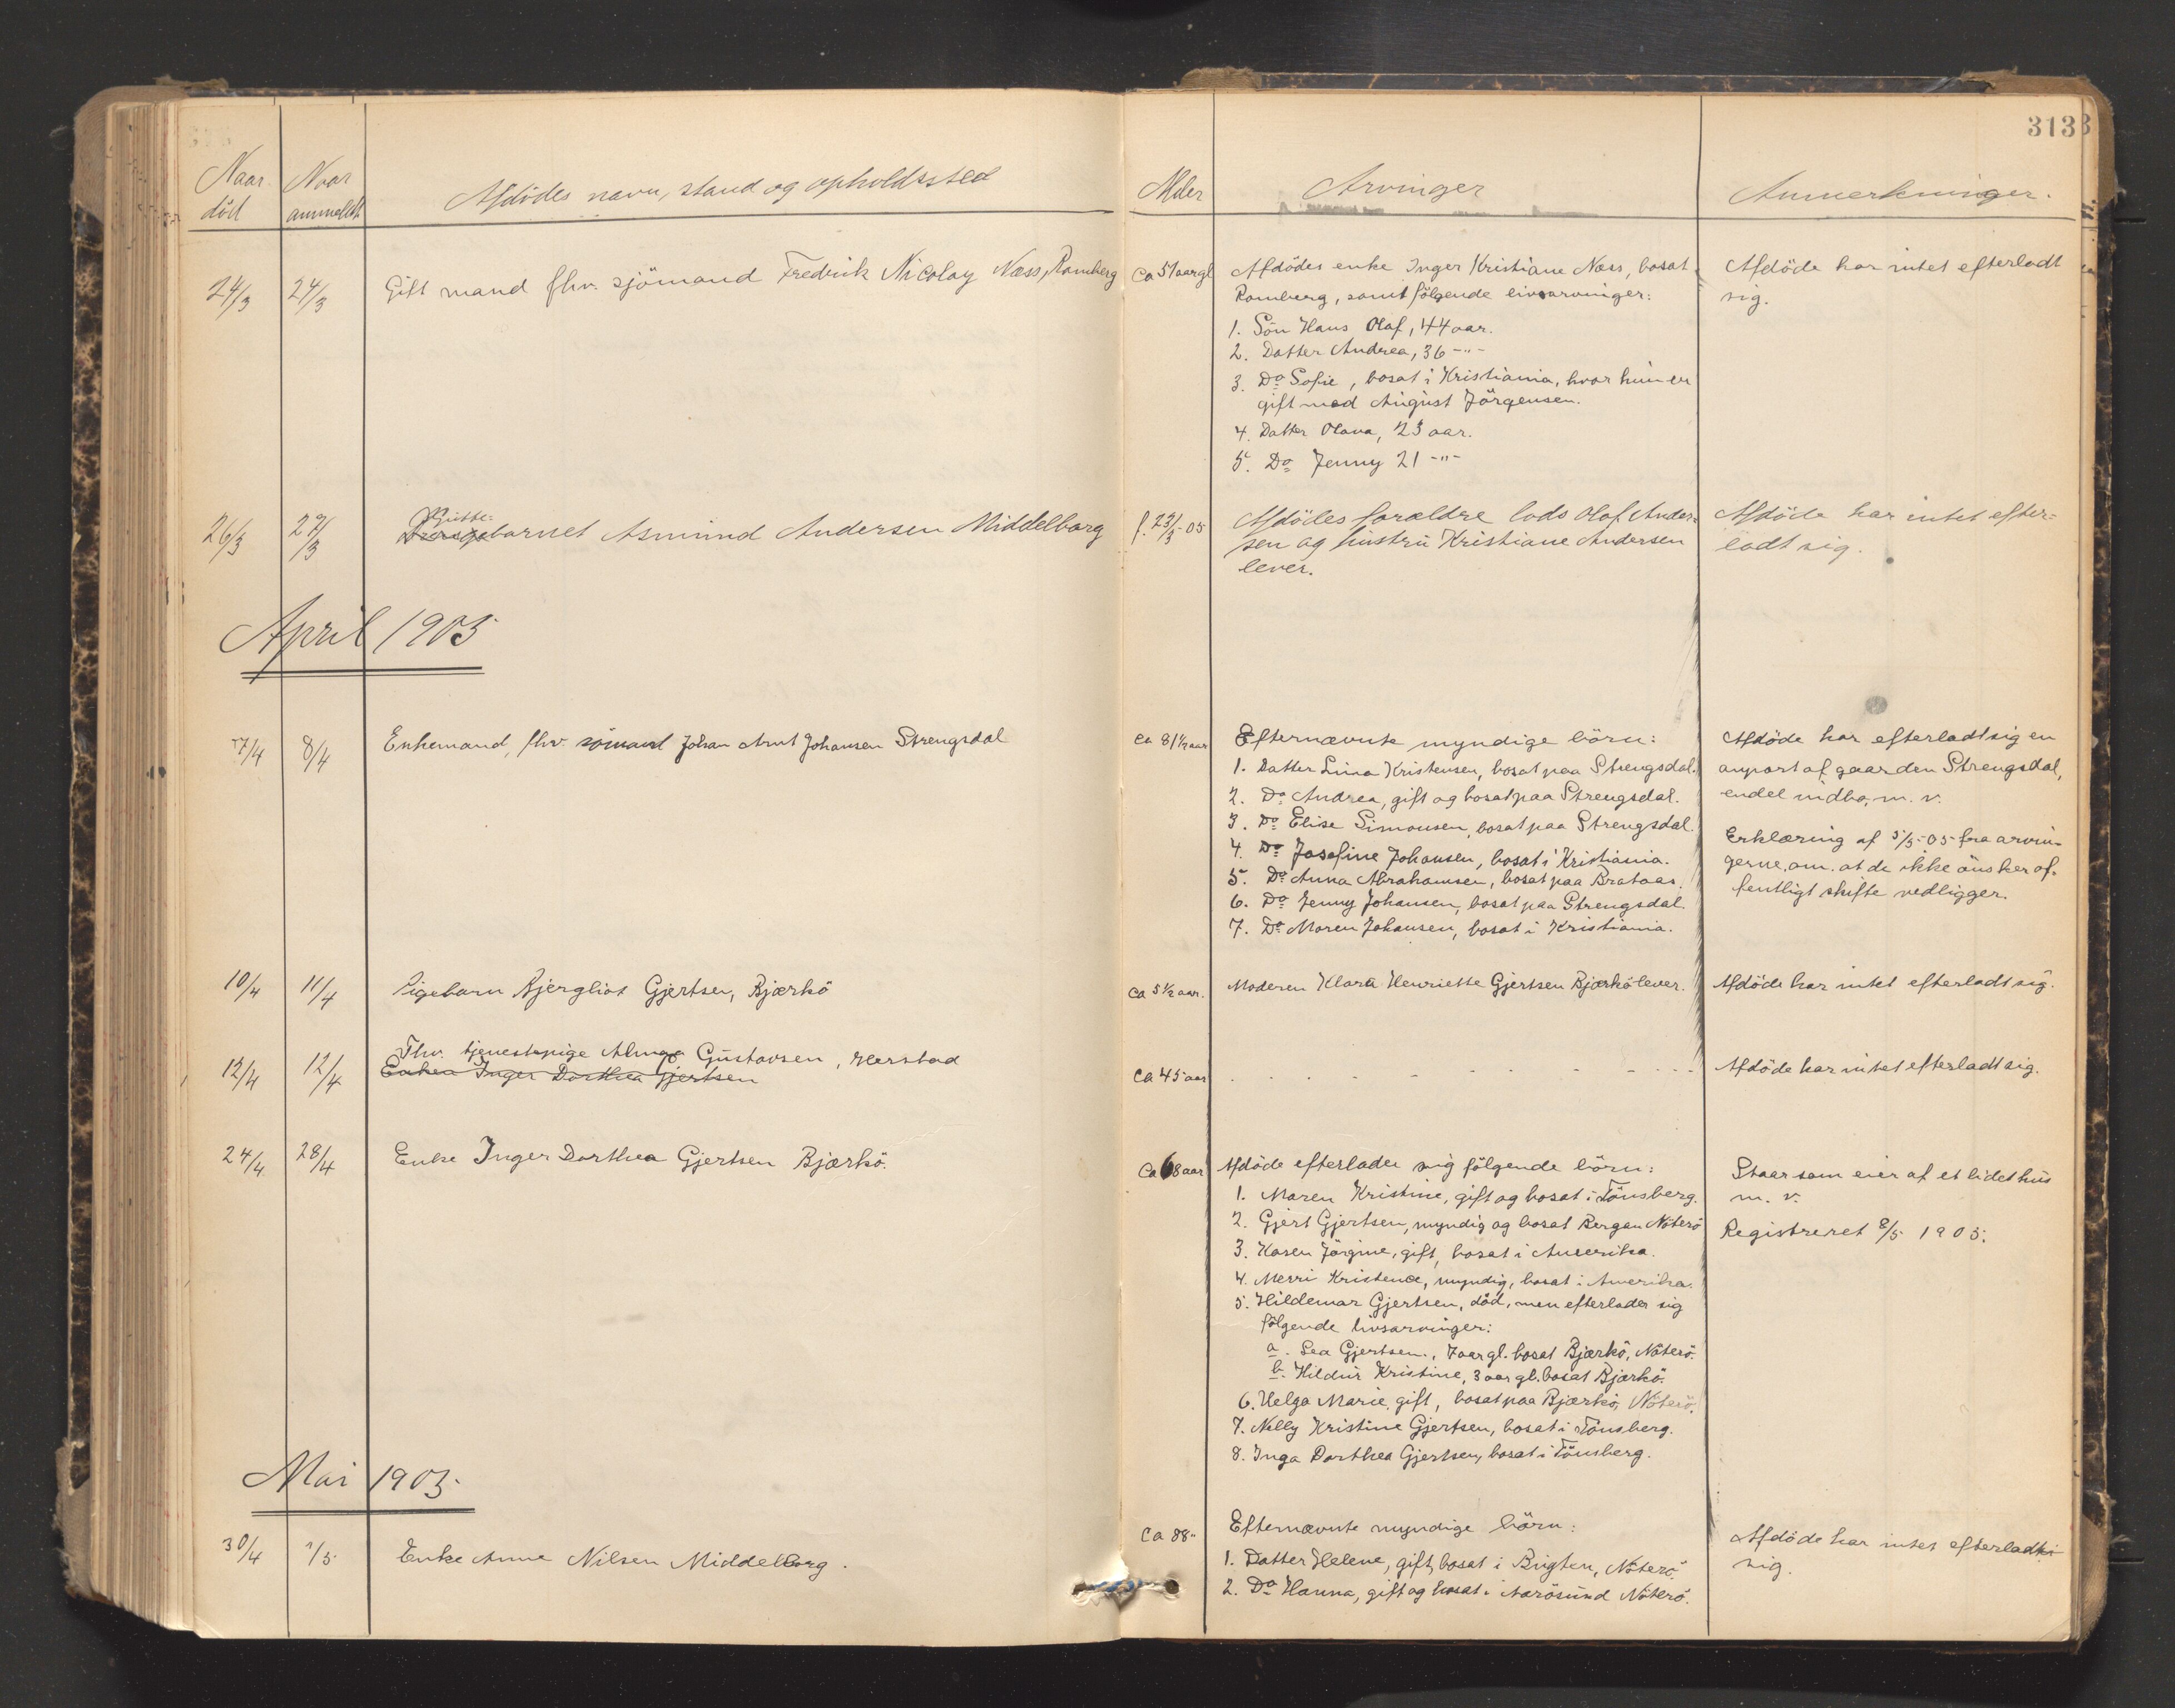 3133
Naar død
Naar anmeldt
Afdödes navn, stand og opholdssted
Alder
Arvinger
Anmerkninger.
24/3 24/3 Gift mand fhv. sjömand Fredrik Nicolay Næss, Ramberg
Afdödes enke Inger Kristiane Næss, bosat
Ramberg, samt fölgende livsarvinger:
1. Sön Hans Olaf, 44 aar.
2. Datter Andrea, 36 -"-
3. Do Sofie, bosat i Kristiania, hvor hun er
gift med August Jörgensen.
4. Datter Olava, 23 aar.
5. Do Jenny 21 -"-
Afdöde har intet efterladt
sig.
Gutte-
26/3 27/3 barnet Asmund Andersen Middelborg
f. 23/3-05
Afdödes forældre lods Olaf Ander=
sen og hustru Kristiane Andersen
lever.
Afdöde har intet efter=
ladt sig.
April 1905
7/4 8/4 Enkemand, fhv. sömand Johan Arnt Johansen Strengsdal
ca 81 1/2 aar
Efternævnte myndige börn:
1. Datter Lina Kristensen, bosat paa Strengsdal.
2. Do Andrea, gift og bosat paa Strengsdal.
3. Do Elise Simonsen, bosat paa Strengsdal.
4. Do Josefine Johansen, bosat i Kristiania.
5. Do Anna Abrahamsen, bosat paa Brataas.
6. Do Jenny Johansen, bosat paa Strengsdal.
7. Do Maren Johansen, bosat i Kristiania.
Afdöde har efterladt sig en
anpart af gaarden Strengsdal,
endel indbo, m. v.
Erklæring af 5/5-05 fra arvin-
gerne, om at de ikke önsker of-
fentligt skifte vedligger.
10/4 11/4 Pigebarn Bjergliot Gjertsen, Bjærkö
ca 5 1/2 aar.
Moderen Klara Henriette Gjertsen Bjærkö lever.
Afdöde har intet efterladt sig.
Fhv. tjenestepige Gustavsen, Herstad
12/4 12/4 Enken Inger Dorthea Gjertsen
ca 45 aar
Afdöde har intet efterladt sig.
24/4 28/4 Enke Inger Dorthea Gjertsen Bjærkö.
ca 68 aar
Afdöde efterlader sig fölgende börn:
1. Maren Kristine, gift og bosat i Tönsberg.
2. Gjert Gjertsen, myndig og bosat Bergan Nöterö
3. Karen Jörgine, gift, bosat i Amerika.
4. Merri Kristence, myndig, bosat i Amerika.
5. Hildemar Gjertsen, död, men efterlader sig
fölgende livsarvinger:
a. Lea Gjertsen, 7 aar gl. bosat Bjærkö, Nöterö.
b. Hildur Kristine, 3 aar gl. bosat Bjærkö.
6. Helga Marie, gift, bosat paa Bjærkö, Nöterö.
7. Nelly Kristine Gjertsen, bosat i Tönsberg.
8. Inga Dorthea Gjertsen, bosat i Tönsberg.
Staar som eier af et lidet hus
m. v.
Registreret 8/5 1905.
Mai 1905.
30/4 1/5 Enke Anne Nilsen Middelborg.
ca 88 "
Efternævnte myndige börn:
1. Datter Helene, gift, bosat i Brigten, Nöterö.
2. Do Hanna, gift og bosat i Aarösund Nöterö.
Afdöde har intet efterladt
sig.